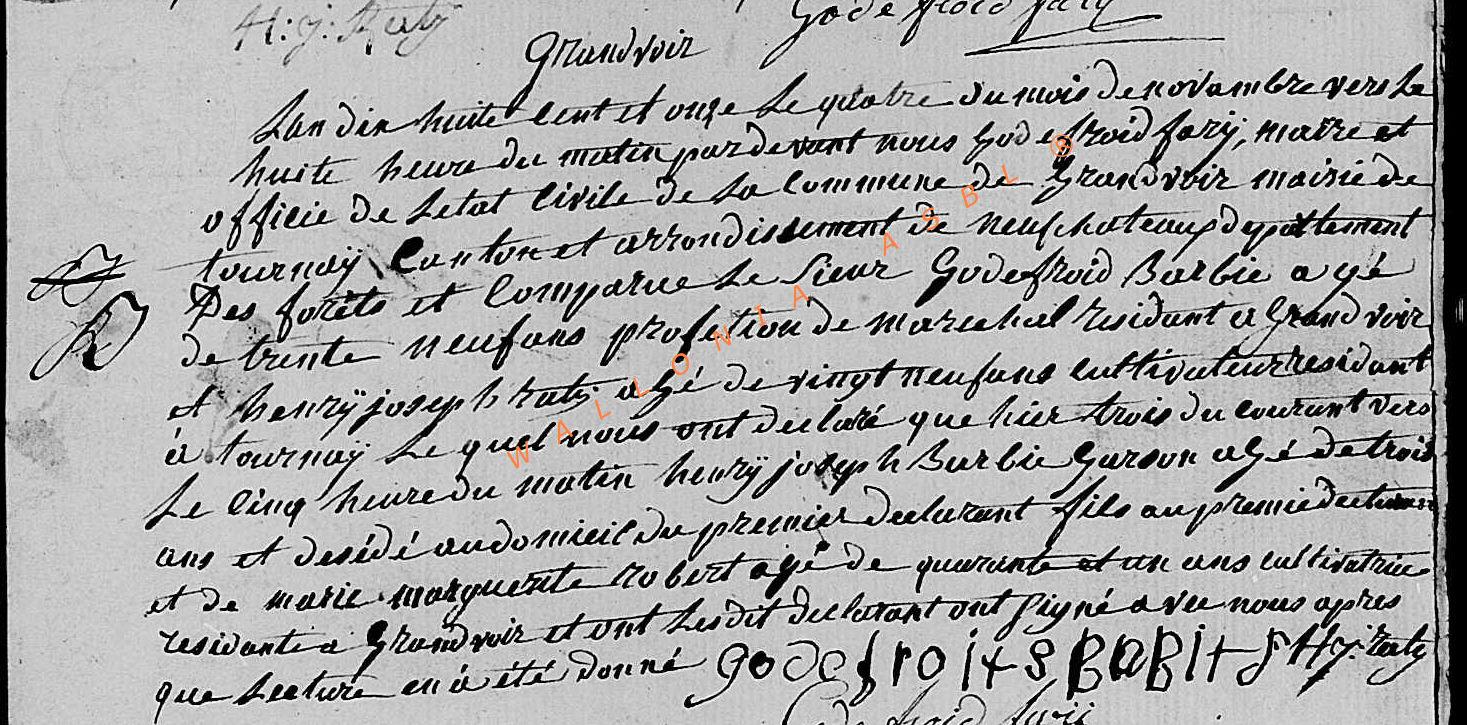 H: j: Raty
Godefroid fary
Grandvoir
Lan dix huite Cent et onze Le quatre du mois de novambre vers Le
huite heure du matin pardevant nous Godefroid farÿ, maire et
officie de Letat Civile de La Commune de Grandvoir mairie de
tournaÿ Canton et arrondissement de neufchateau departement
Des forêts et Comparue Le Sieur Godefroid Barbie agé
de trente neuf ans profetion de marechal residant a Grandvoir
et henrÿ joseph raty agé de vingt neuf ans cultivateur residant
à tournaÿ Le quel nous ont declaré que hier trois du courant vers
Le Cinq heure du matin henrÿ joseph Barbie Garson agé de trois
ans et desédé au domicil du premier declarant fils au premie declarant
et de marie marguerite robert agé de quarante et un ans cultivatrice
residante a Grandvoir et ont Lesdit declarant ont signé avec nous apres
que Lecture en à été donné godefroit+s BABIt+s H j: raty
Godefroid farij
WALLONIA ASBL ®